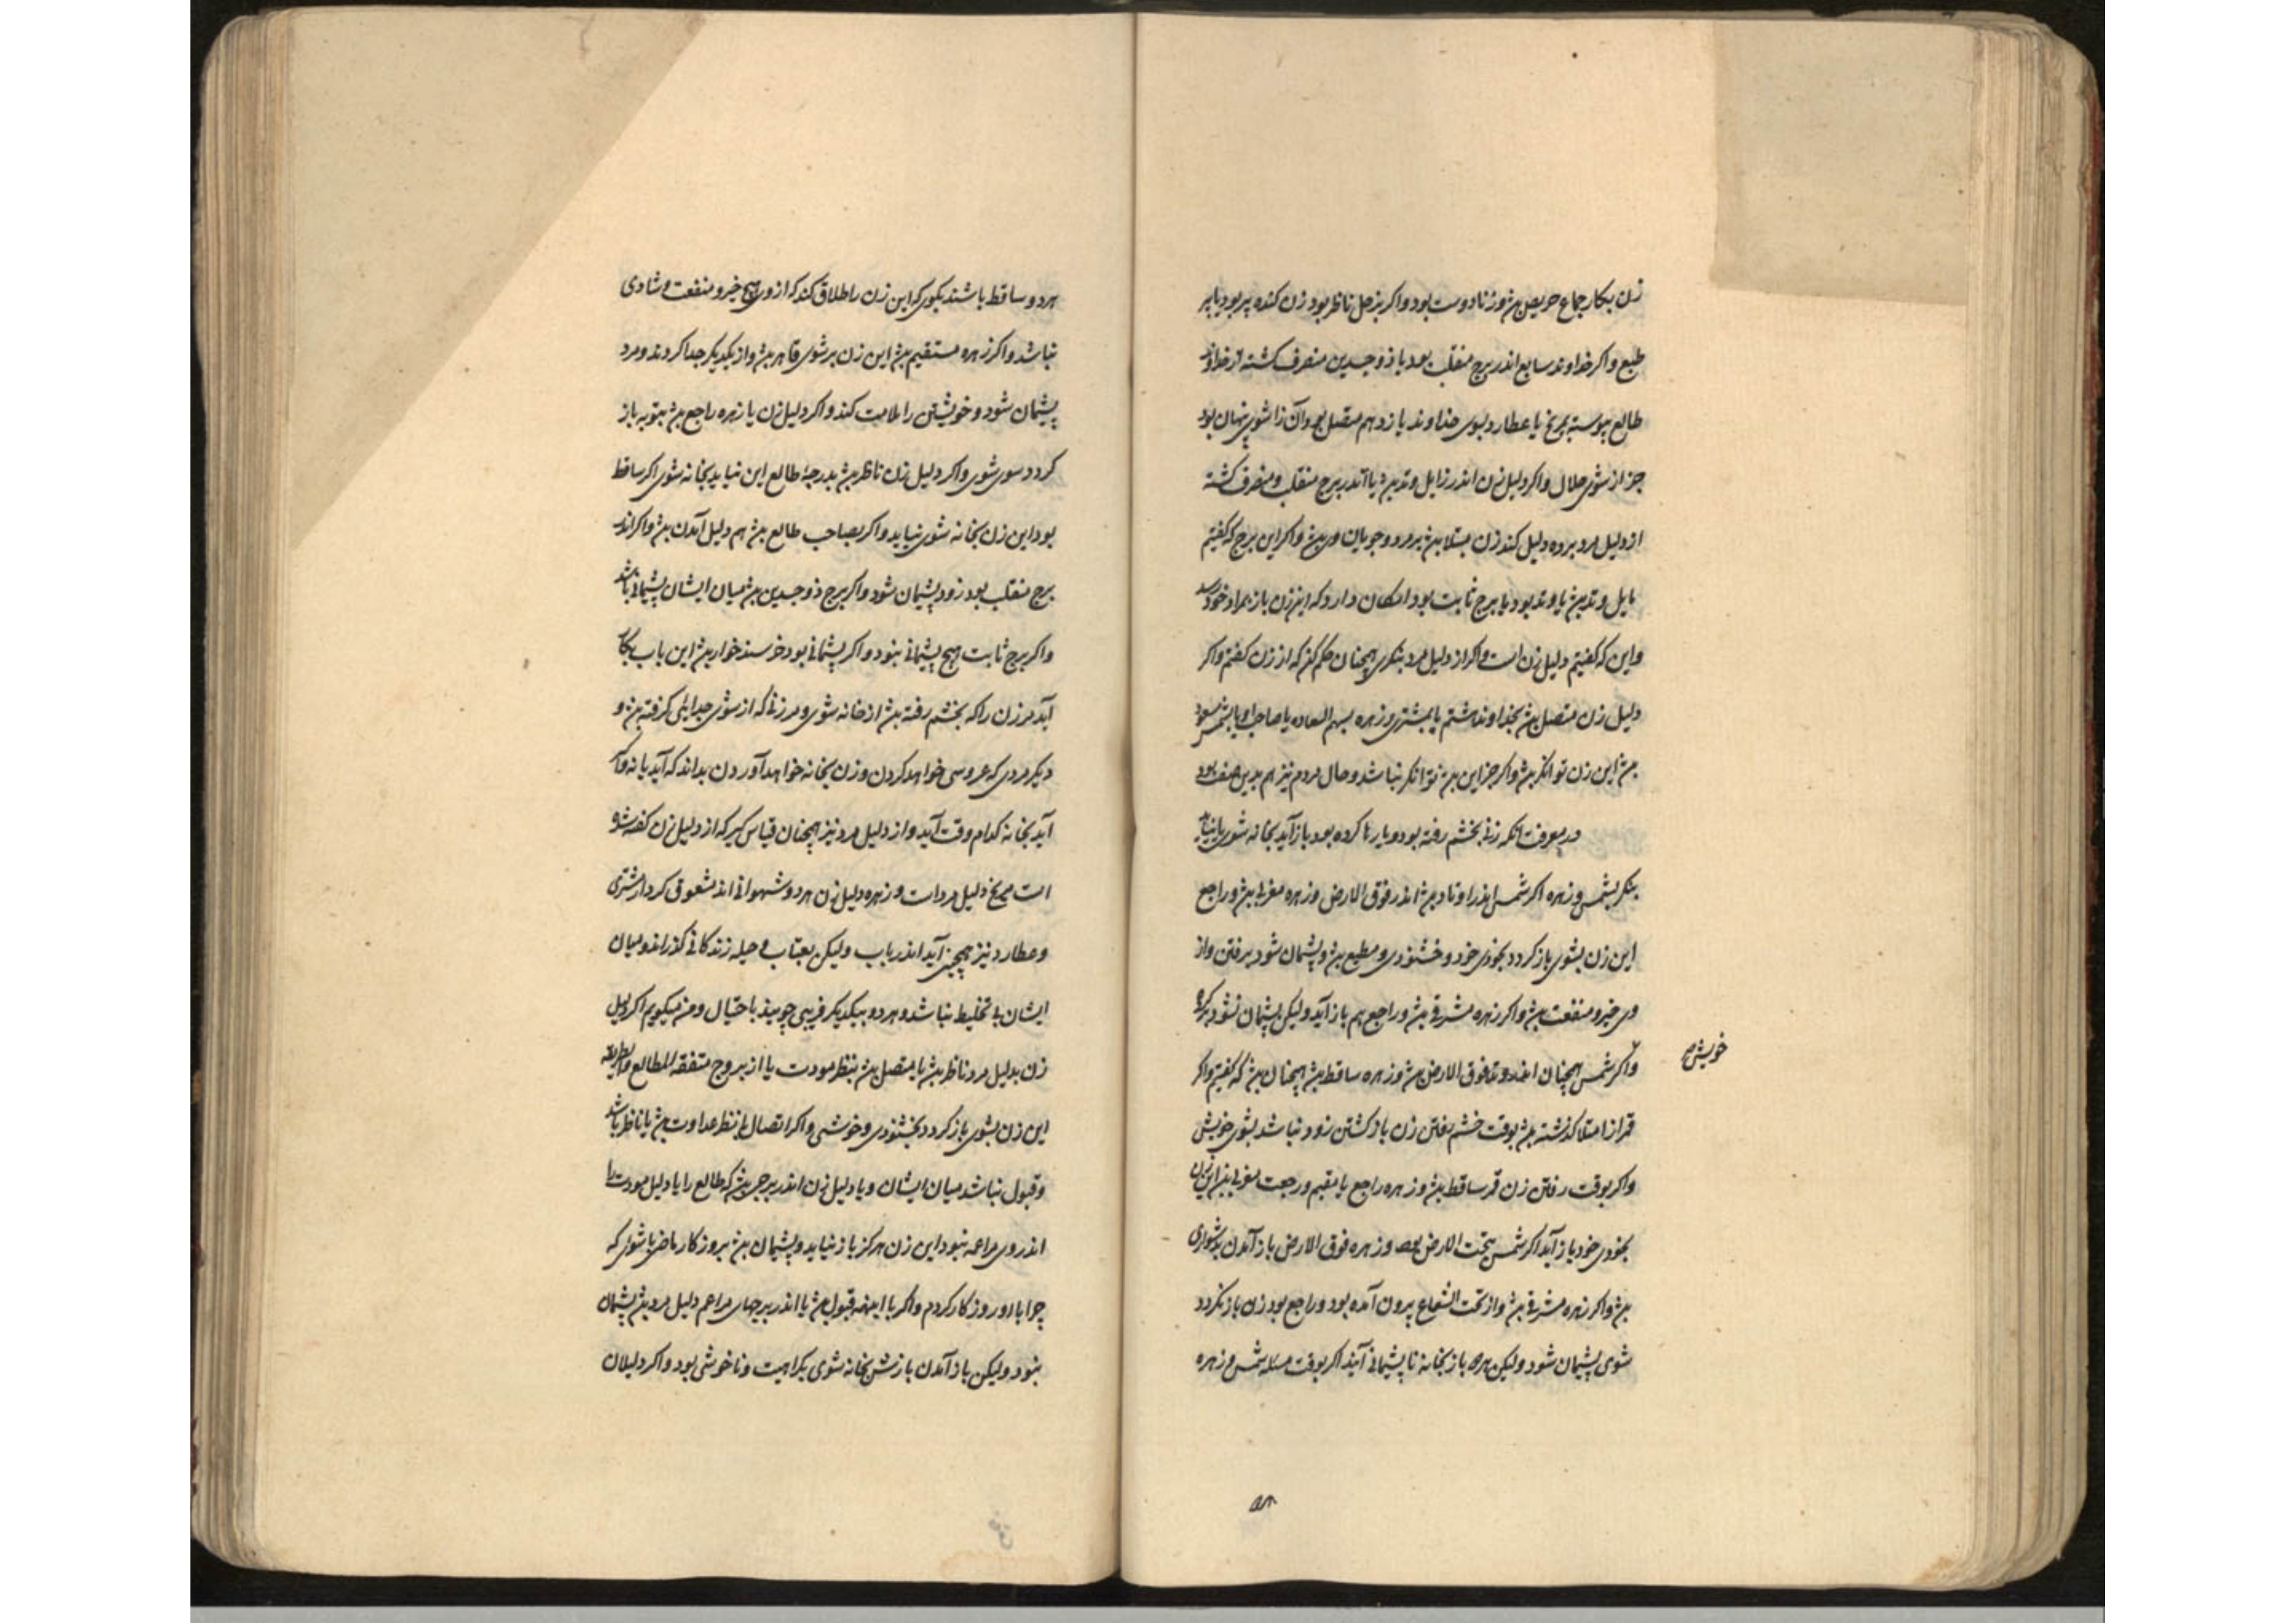 زن بکار جماع حریص بود و زنا دوست بود و اکر بزحل ناظر بود زن کنده پیر بود یا پیر
طبع و اکر خداوند سابع اندر برج منقلب بود یا ذو جسدین منصرف کشته از خداوند
طالع پیوسته بمریخ یا عطارد بسوی خداوند یازدهم متصل بود آن را شوی پنهان بود
جز از شوی حلال و اکر دلیل زن اندر زایل وتد بود یا اندر برج منقلب و منصرف کشته
از دلیل مرد بر وی دلیل کند زن مبتلا بود بر مرد و جویان وی بود و اکر این برج که کفتیم
مایل وتد بود یا وتد بود یا برج ثابت بود امکان دارد که این زن باز بمراد خود رسد
و این که کفتیم دلیل زن است و اکر از دلیل مرد بنکری همچنان حکم کن که از زن کفتم و اکر
دلیل زن متصل بود بخداوند هشتم یا بمشتری و زهره بسهم السعاده یا صاحب او یا بشمس مسعود
بود این زن توانکر بود و اکر جز این بود توانکر نباشد و حال مردم نیز هم بدین صفت بود
در معرفت آنکه زنی بخشم رفته بود و یا رها کرده بود باز آید بخانه شوی یا نیاید
بنکر بشمس و زهره اکر شمس اندر اوتاد بود اندر فوق الارض و زهره مغربی بود و راجع
این زن بشوی باز کردد بخودی خود و خشنودی و مطیع بود و پشیمان شود بر رفتن و از
وی خیر و منفعت بود و اکر زهره مشرقی بود و راجع هم باز آید ولیکن پشیمان نشود بر کرده
خویش
و اکر شمس همچنان اندر وتد فوق الارض بود و زهره ساقط بود همچنان بود که کفتیم و اکر
قمر از امتلا کذشته بود بوقت خشم رفتن زن باز کشتن زود نباشد بشوی خویش
و اکر بوقت رفتن زن قمر ساقط بود و زهره راجع یا مقیم و رجعت مغربی بود این زن
بخودی خود باز آید اکر شمس تحت الارض بود و زهره فوق الارض باز آمدن بدشواری
بود و اکر زهره مشرقی بود و از تحت الشعاع بیرون آمده بود و راجع بود زن باز نکردد
شوی پشیمان شود ولیکن باز بخانه تا پشیمانی آیند اکر بوقت مسئله شمس و زهره
۵۸
هر دو ساقط باشند بکوی که این زن را طلاق کند که از وی هیچ خیر و منفعت و شادی
نباشد و اکر زهره مستقیم بود این زن بر شوی قاهر بود و از یکدیکر جدا کردند و مرد
پشیمان شود و خویشتن را ملامت کند و اکر دلیل زن یا زهره راجع بود بتوبه باز
کردد سوی شوی و اکر دلیل زن ناظر بود بدرجهٔ طالع این نیاید بخانه شوی اکر ساقط
بود این زن بخانه شوی نیاید و اکر بصاحب طالع بود هم دلیل آمدن بود و اکر اندر
برج منقلب بود زود پشیمان شود و اکر برج ذو جسدین بود میان ایشان پشیمانی باشد
و اکر برج ثابت هیچ پشیمانی نبود و اکر پشیمانی بود خرسند خوار بود این باب بکار
آید مر زن را که بخشم رفته بود از خانه شوی و مر زنی که از شوی جدایی کرفته بود و
دیکر مردی که عروسی خواهد کردن و زن بخانه خواهد آوردن بداند که آید یا نه و اکر
آید بخانه کدام وقت آید و از دلیل مرد نیز همچنان قیاس کیر که از دلیل زن کفته شو
است مریخ دلیل مرد است و زهره دلیل زن هر دو شهوانی اند بمعشوقی کردار مشتری
و عطارد نیز همچنین آید اندر باب ولیکن بعتاب و حیله زندکانی کذرانند و میان
ایشان بی تخلیط نباشد و هر دو بیکدیکر فریبی جویند باحتیال و من میکویم اکر دلیل
زن بدلیل مرد ناظر بود یا متصل بود بنظر مودت یا از بروج متفقه المطالع و الطریقه
این زن بشوی باز کردد بخشنودی و خوشی و اکر اتصال بی نظر عداوت بود یا ناظر باشد
و قبول نباشد میان ایشان و یا دلیل زن اندر برجی بود که طالع را یا دلیل مرد را
اندر وی مزاعمه نبود این زن هرکز باز نیاید و پشیمان بود بروزکار ماضی با شوی که
چرا با او روزکار کردم و اکر با اینهمه قبول بود یا اندر برجهای مزاعم دلیل مرد بود پشیمان
نبود ولیکن باز آمدن بازشن بخانه شوی بکراهیت و ناخوشی بود و اکر دلیلان